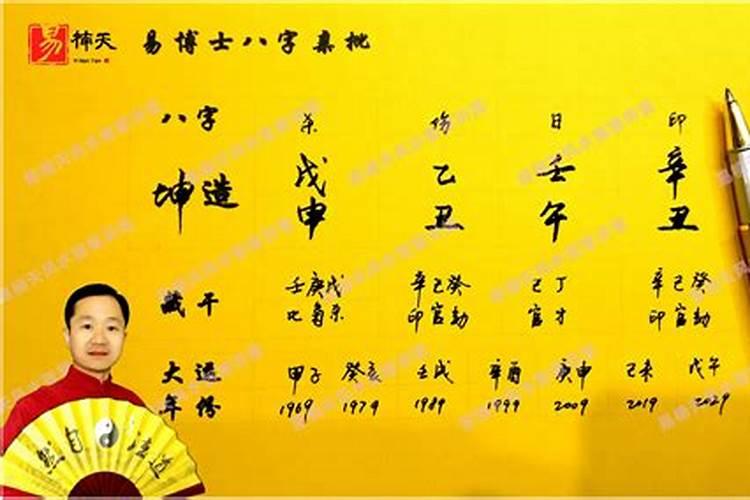 易
楠天 易博士八字彙批
八字 杀 伤 日 印
坤造 戊 乙 壬 辛
申 丑 午 丑
藏干 壬庚戊 辛己癸 己丁 辛己癸
比枭杀 印官劫 官才 印官劫
大运 甲子 癸亥 壬戌 辛酉 庚申 己未 戊午
年份 1969 1979 1989 1999 2009 2019 2029
然自法道